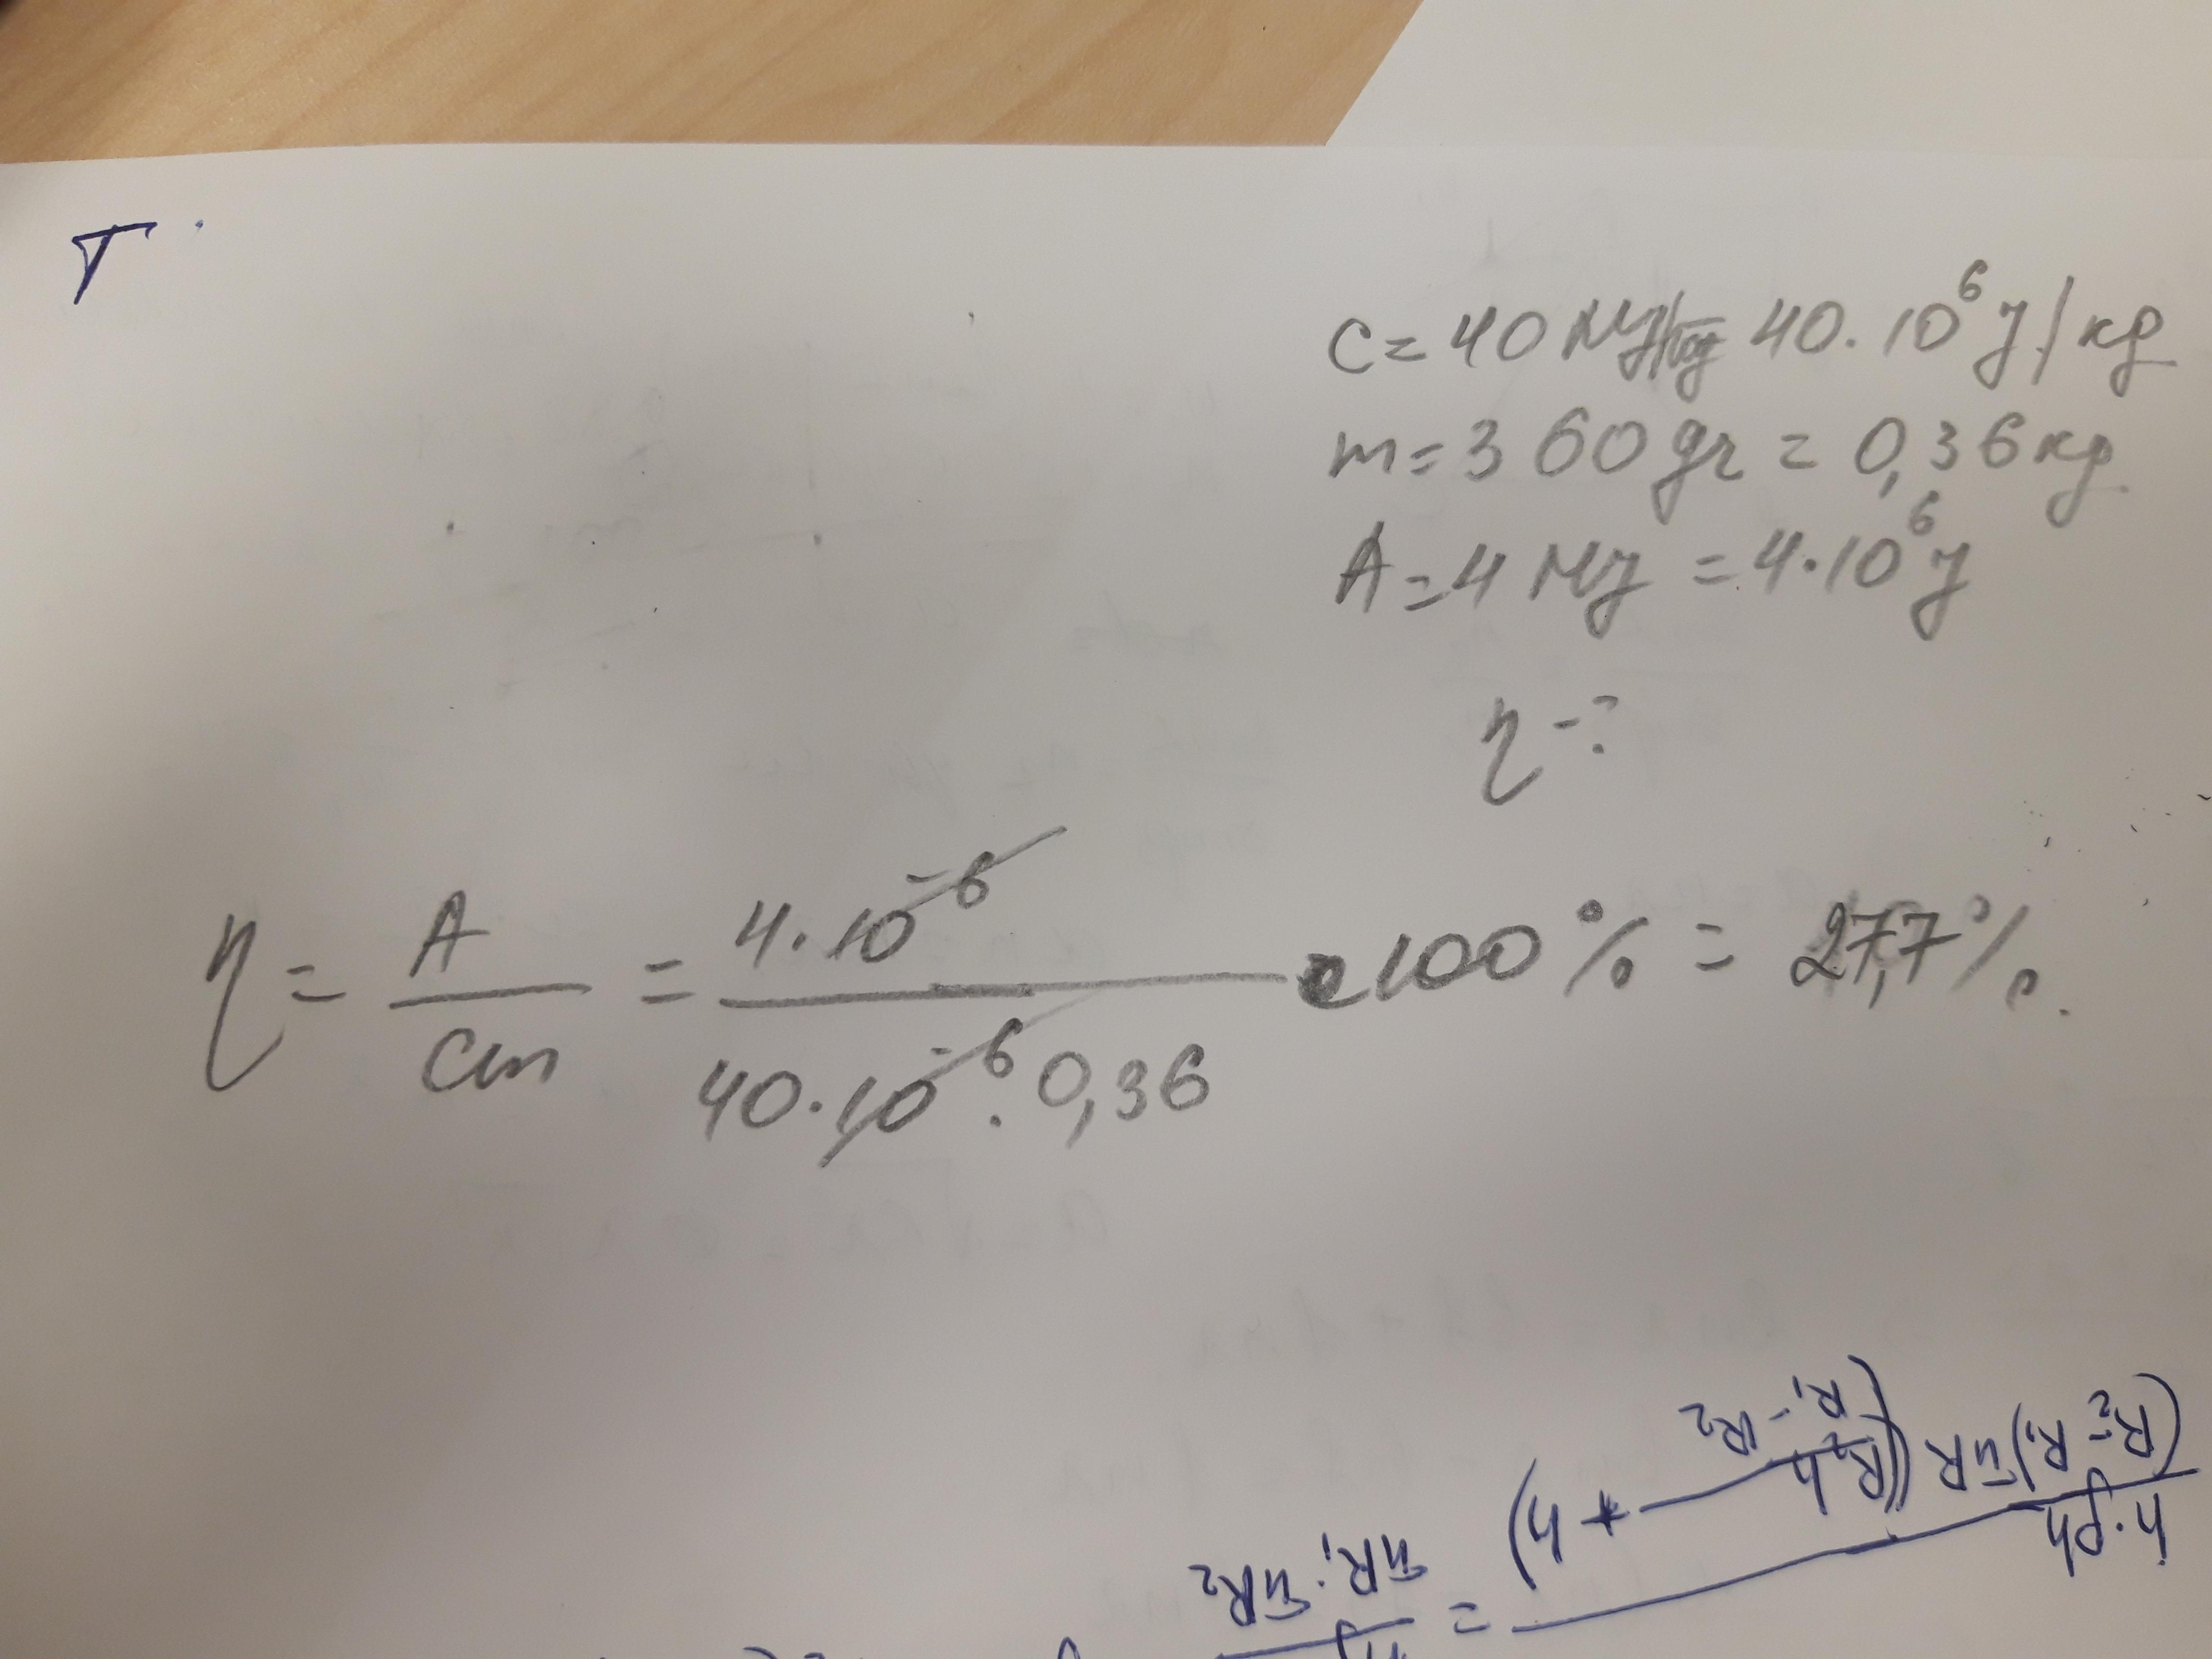 T
C = 40 My/kg = 40 · 10⁶ y/kg
m = 360 gr = 0,36 kg
A = 4 My = 4 · 10⁶ y
η - ?
η = A / Cm = 4 · 10⁻⁶ / 40 · 10⁻⁶ · 0,36 · 100 % = 27,7 %.
(R₂ - R₁) πR
h · ρh
πR₁ · πR₂
=